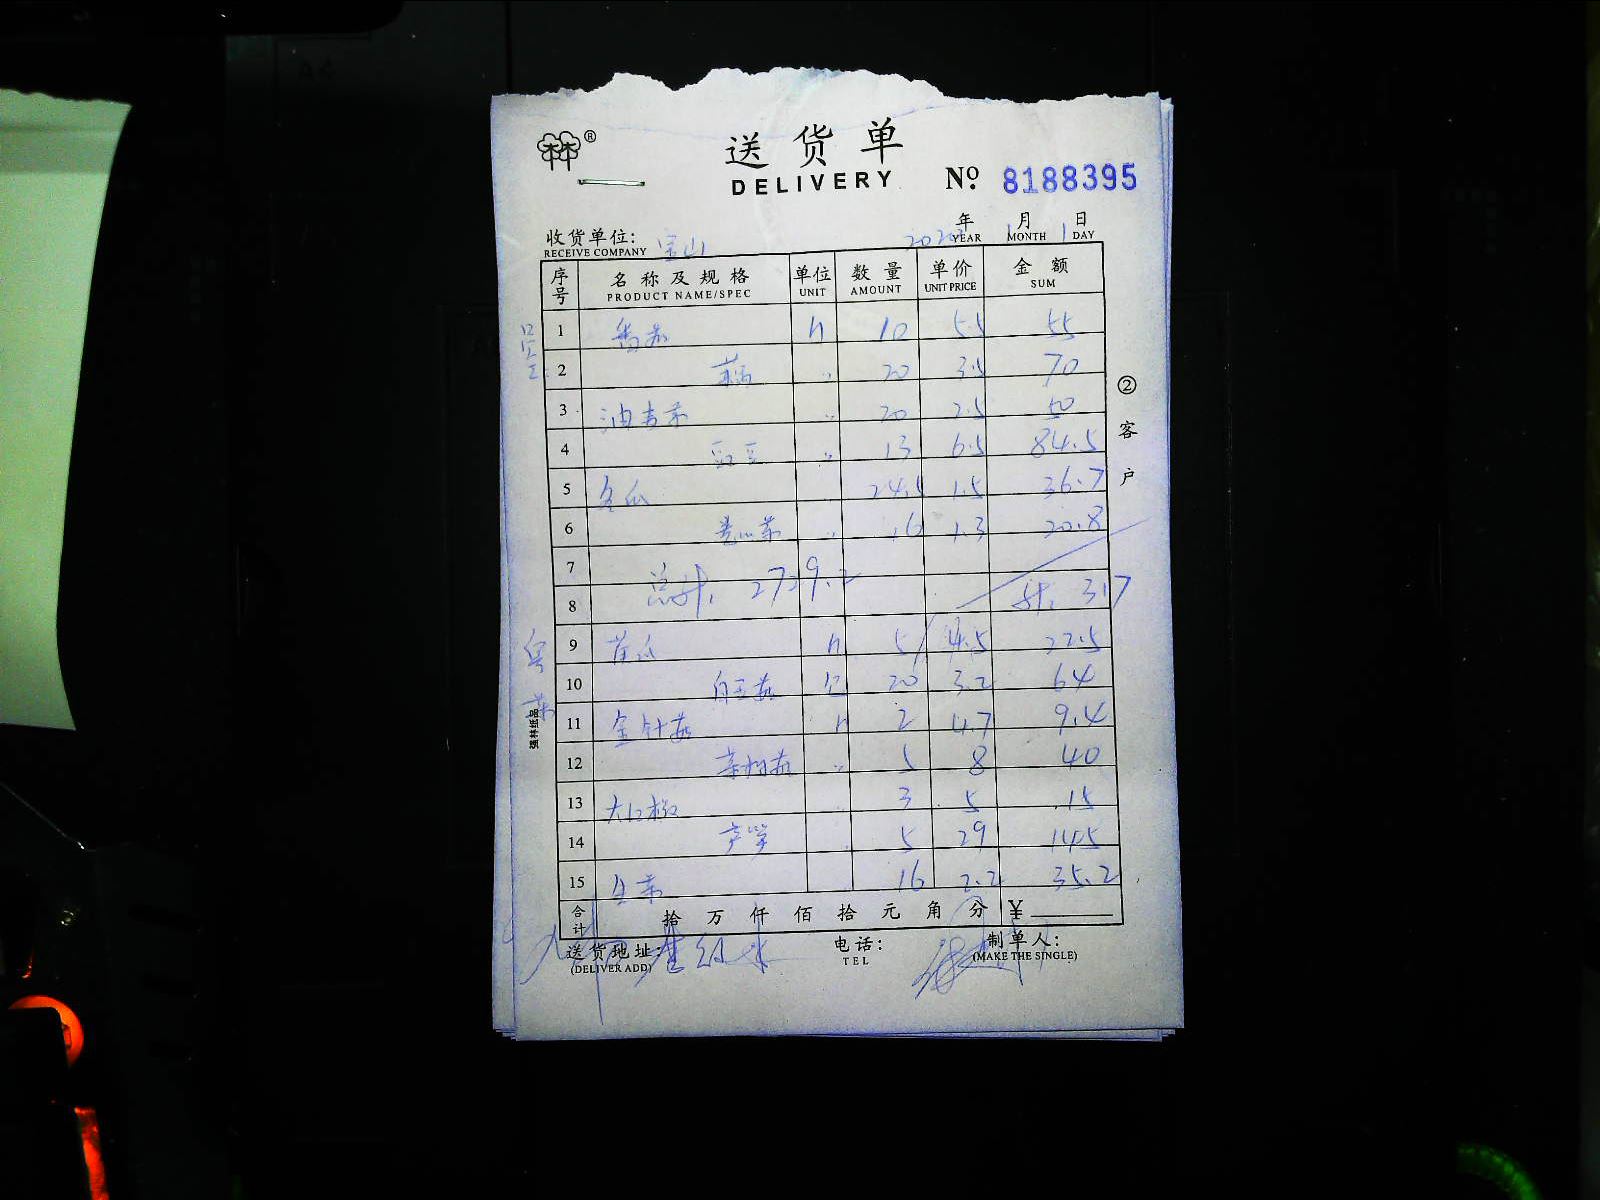 林林®
送货单
DELIVERY
No. 8188395
年 月 日
收货单位: 宝山 YEAR 1 MONTH 1 DAY
RECEIVE COMPANY
序号 名称及规格 单位 数量 单价 金额
PRODUCT NAME/SPEC UNIT AMOUNT UNIT PRICE SUM
1 番茄 10 5.5 55
2 20 3.5 70
3 油麦菜 20 2.5 50
4 豇豆 13 6.5 84.5
5 冬瓜 24.5 1.5 36.7
6 16 1.3 20.8
7
8 总计: 2729.2 计: 317
9 5 4.5 22.5
10 白玉菇 20 3.2 64
11 金针菇 2 4.7 9.4
12 茶树菇 5 8 40
13 大红椒 3 5 15
14 芦笋 5 29 145
15 生菜 16 2.2 35.2
合计 拾 万 仟 佰 拾 元 角 分 ¥
送货地址: 电话: 制单人:
(DELIVER ADD) TEL (MAKE THE SINGLE)
②客户
强林纸品